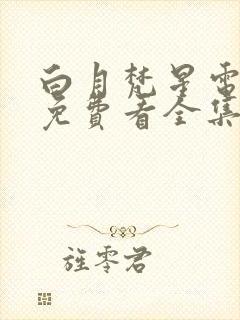 白月梵星電
免費看全集
旌零君